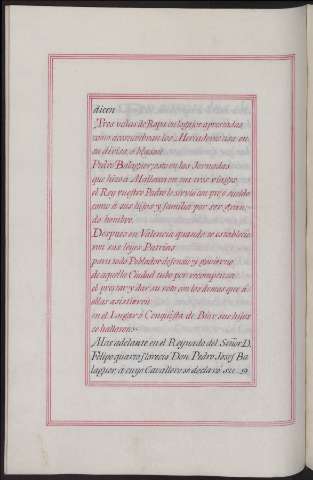 dicen
Tres vilas de Raya
como acostumbran los Mercaderes
su divisa o blason
Pedro Balaguer, este en las Jornadas
que hizo a Mallorca en sus tres viages
el Rey nuestro Padre le sirvio con pre
como a sus hijos y familia por ser gran-
de hombre.
Despues en Valencia quando se establecie
ron sus leyes Patrias
para todo Poblador defensa y govierno
de aquella Ciudad tubo por recompensa
el prestar y dar su voto con los demas que a
ellas asistieron
en el Lugar o Conquista de Biar sus hijos
se hallaron
Mas adelante en el Reynado del Señor D.
Felipe quarto florecio Don Pedro Josef Ba
laguer, a cuyo Cavallero se declaró su